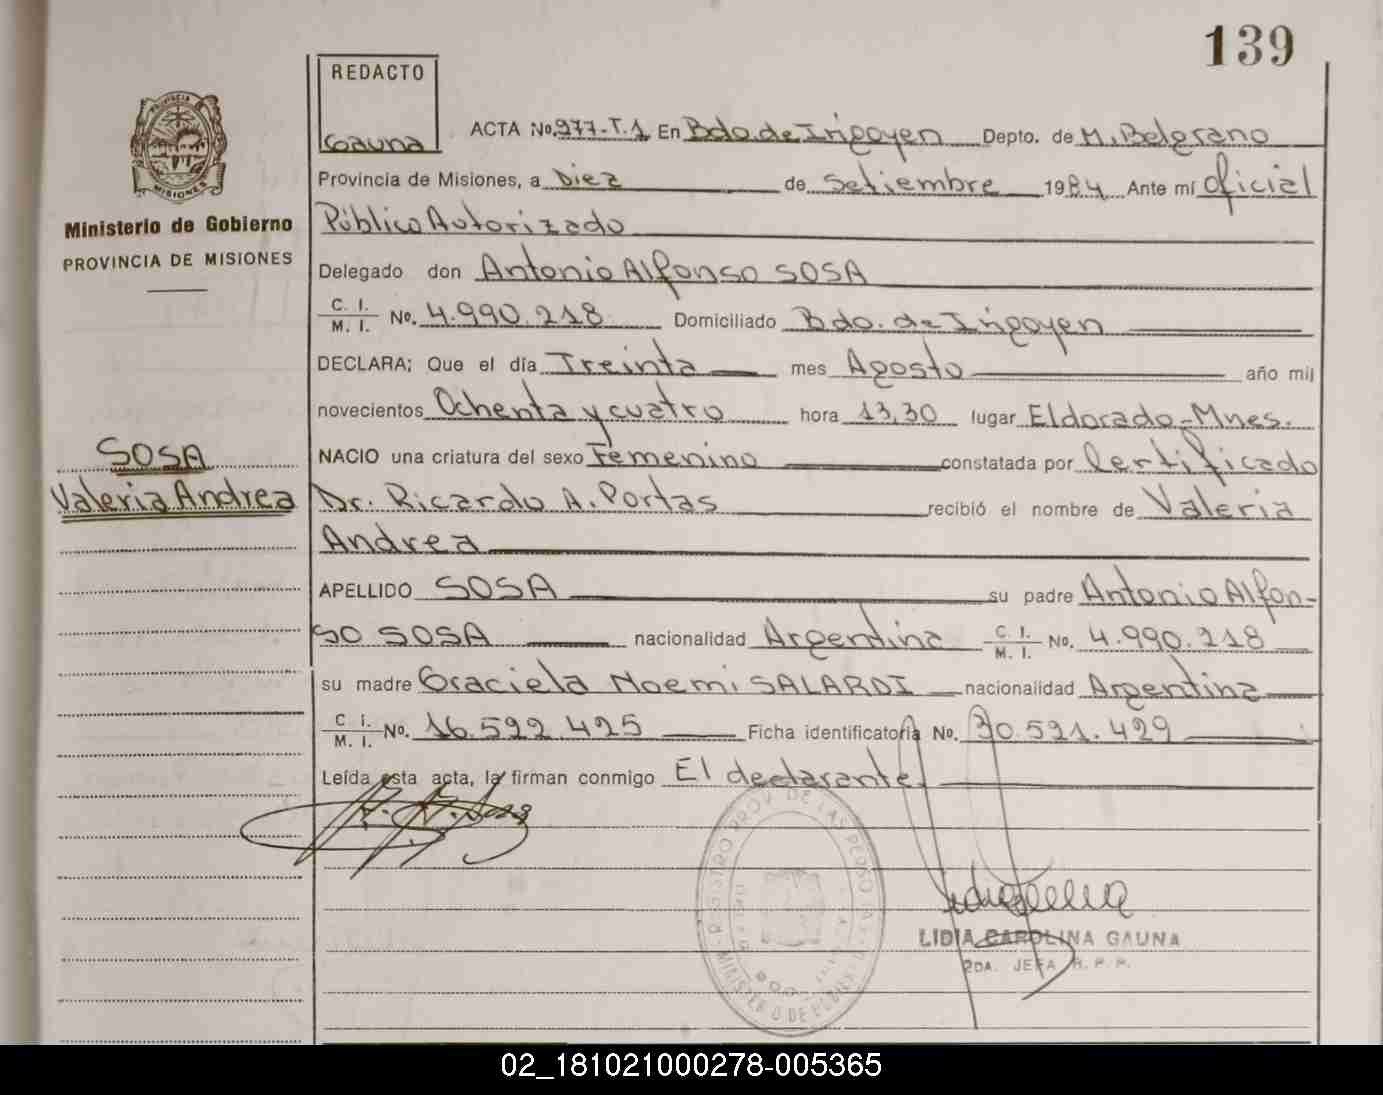 139
REDACTO
Gauna
ACTA No. 977-T.1 En Bdo. de Irigoyen Depto. de M. Belgrano
Provincia de Misiones, a Diez de Setiembre 1984 Ante mí Oficial
Público Autorizado
Delegado don Antonio Alfonso SOSA
C. I.
M. I. No. 4.990.218 Domiciliado Bdo. de Irigoyen
DECLARA; Que el día Treinta mes Agosto año mil
novecientos Ochenta y cuatro hora 13,30 lugar Eldorado-Mnes.
NACIO una criatura del sexo Femenino constatada por Certificado
Dr. Ricardo A. Portas recibió el nombre de Valeria
Andrea
APELLIDO SOSA su padre Antonio Alfon-
so SOSA nacionalidad Argentina C. I.
M. I. No. 4.990.218
su madre Graciela Noemi SALARDI nacionalidad Argentina
C I.
M. I. No. 16.592.425 Ficha identificatoria No. 30.521.429
Leída esta acta, la firman conmigo El declarante.
PROVINCIA
MISIONES
Ministerio de Gobierno
PROVINCIA DE MISIONES
SOSA
Valeria Andrea
REGISTRO PROV. DE LAS PERSONAS
MINISTERIO DE GOBIERNO
LIDIA CAROLINA GAUNA
2DA. JEFA R. P. P.
02_181021000278-005365